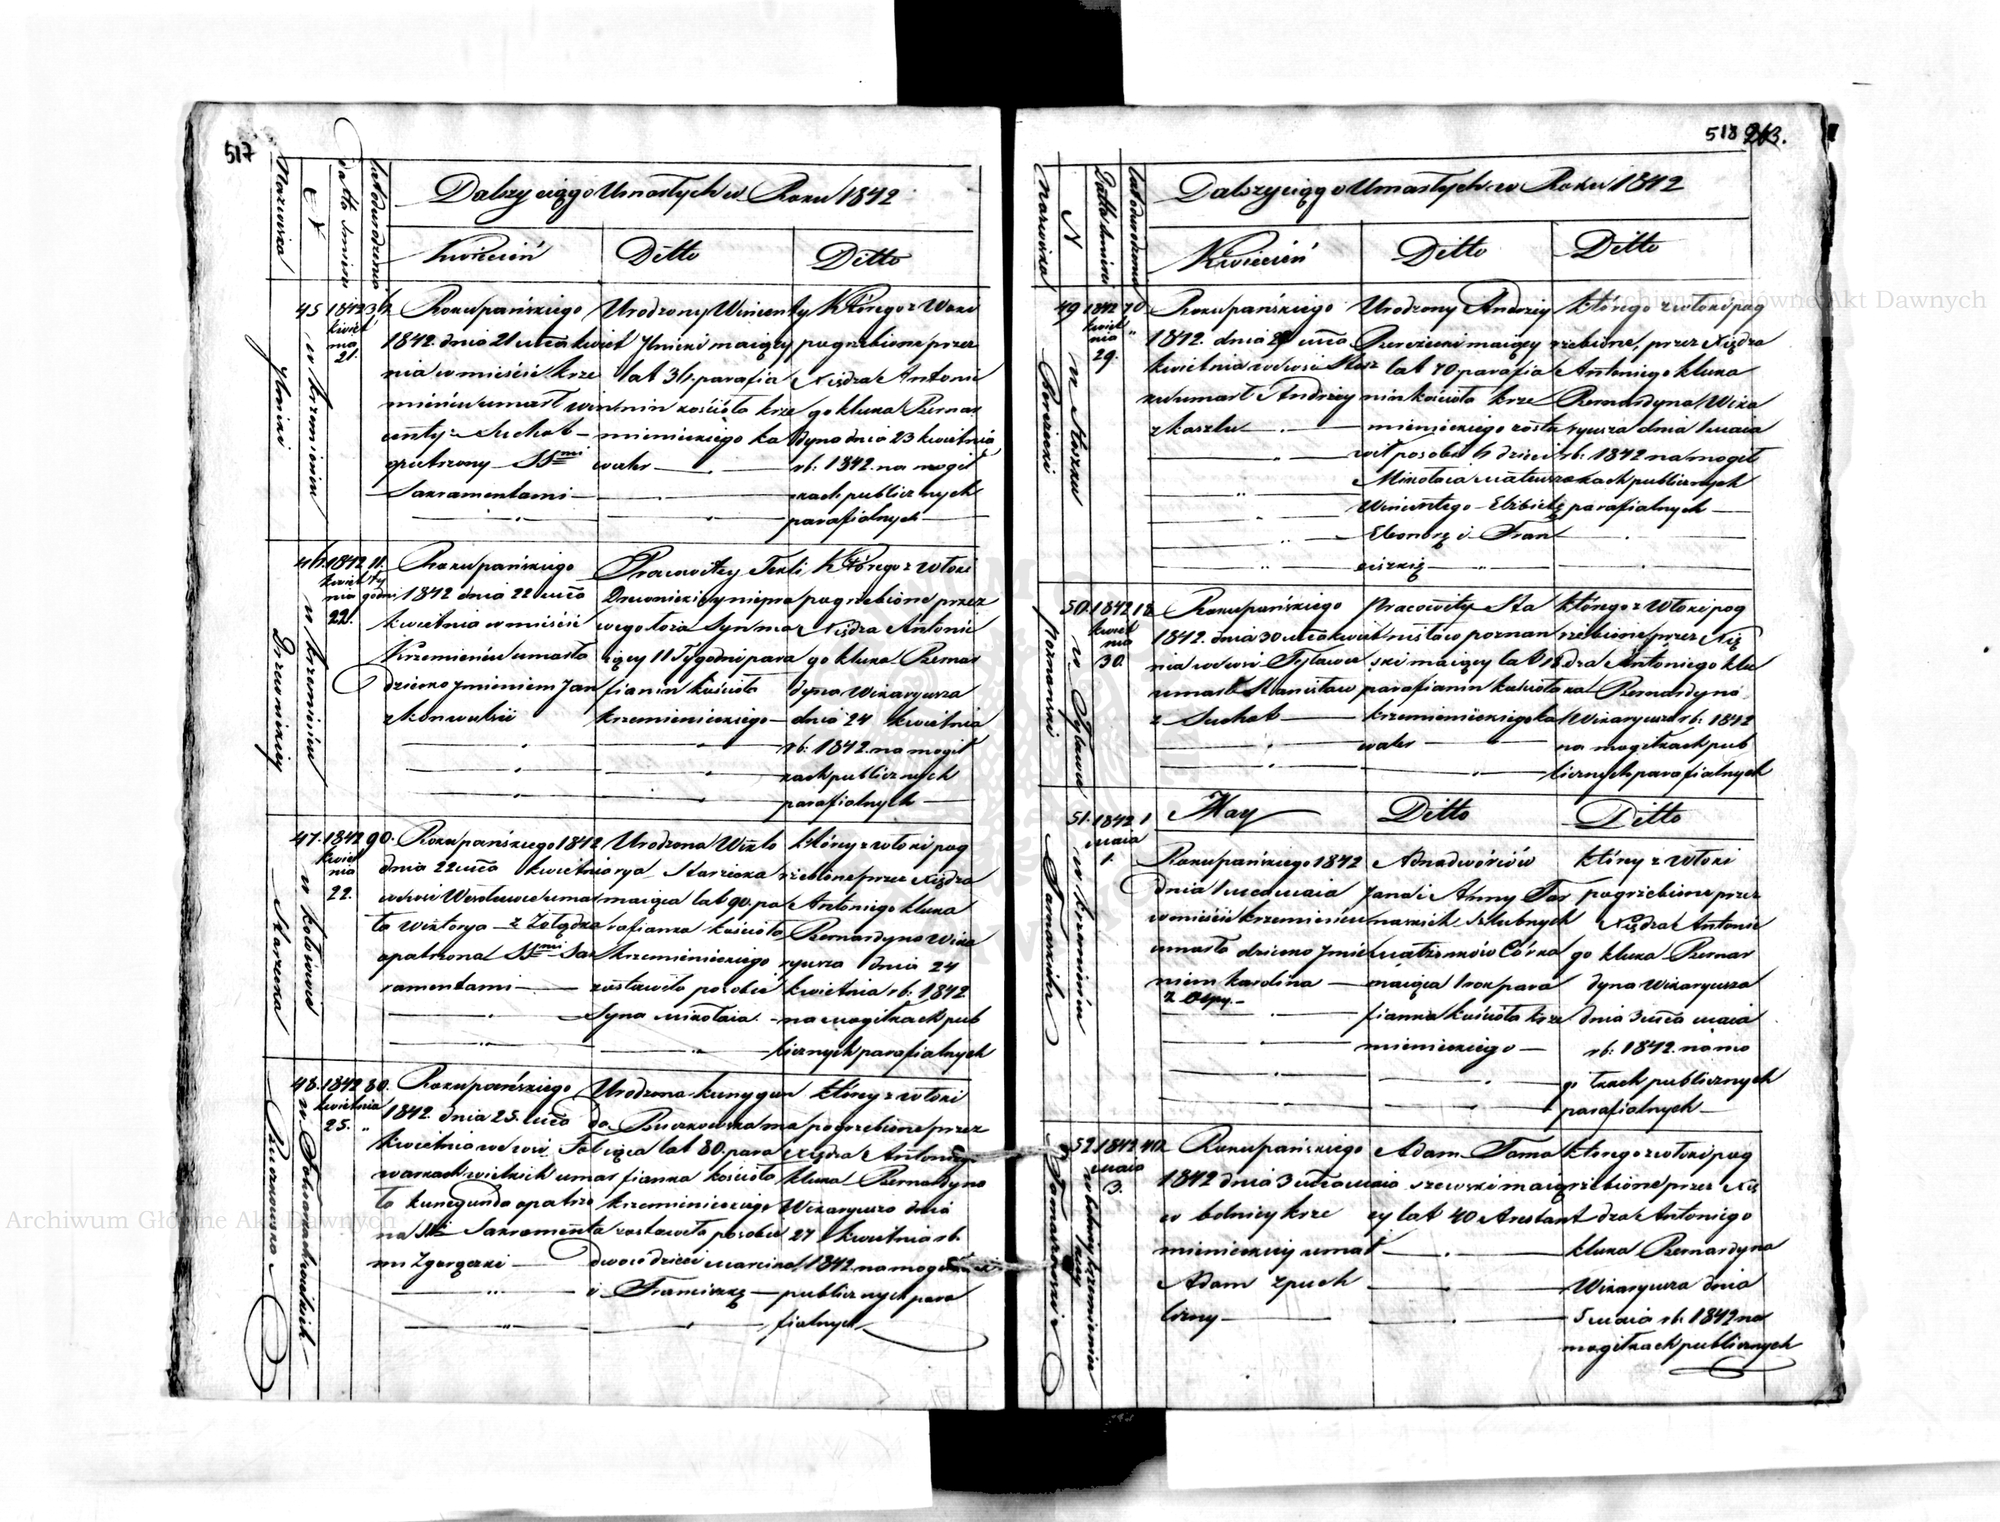 517
Dalszy ciąg o Umarłych w Roku 1842
Nazwiska
N
Datta Smierci
Kwiecień
Ditto
Ditto
45
1842
kwiet
nia
21.
36.
w Krzemieńcu
Ilnicki
Roku pańskiego
1842. dnia 21 mca kwiet
nia w mieście Krze
mieńcu umarł Win
centy z Suchot
opatrzony SSmi
Sakramentami
Urodzony Wincenty
Ilnicki maiący
lat 36. parafia
nin kościoła krze
mienieckiego ka
waler
Którego z Włoki
pogrzebione przez
Xiędza Antonie
go kluka Bernar
dyna dnia 23 kwietnia
rb: 1842. na mogił
kach publicznych
parafialnych
46.
1842
kwiet
nia
22.
11.
ty
godni
w Krzemieńcu
Drewnickiey
Roku pańskiego
1842 dnia 22 mca
kwietnia w mieście
Krzemieńcu umarło
dziecko Jmieniem Jan
z konwulsii
Pracowitey Tekli
Drewnickiey niepra
wego łoża Syn ma
iący 11 Tygodni para
fianin kościoła
krzemienieckiego
Którego z włoki
pogrzebione przez
Xiędza Antonie
go kluka Bernar
dyna Wikaryusza
dnia 24 kwietnia
rb: 1842. na mogił
kach publicznych
parafialnych
47.
1842
kwiet
nia
22.
90.
Roku pańskiego 1842
dnia 22 mca kwietnia
umar
ła Wiktorya z Żołądka
opatrzona SSmi Sak
ramentami
Urodzona Wikto
rya
maiąca lat 90. pa
rafianka kościoła
krzemienieckiego
zostawiła po sobie
Syna Mikołaia
którey z włoki pog
rzebione przez Xiędza
Antoniego kluka
Bernardyna Wika
ryusza dnia 24
kwietnia rb: 1842
na Mogiłkach pub
licznych parafialnych
48.
1842
kwietnia
25.
80.
Buczkowska
Roku pańskiego
1842. dnia 25. mca
kwietnia we wsi Fol
warkach wielkich umar
ła kunegunda opatrzo
na SSmi Sakramenta
mi Zgorączki
Urodzona kunegun
da Buczkowska ma
iąca lat 80. para
fianka kościoła
krzemienieckiego
zostawiła po sobie
dwoie dzieci Marcina
i Franciszkę
którey z włoki
pogrzebione przez
Xiędza Antoniego
kluka Bernardyna
Wikaryusza dnia
27 kwietnia rb.
1842. na mogiłkach
publicznych para
fialnych
518 263.
Dalszy ciąg o Umarłych w Roku 1842
Nazwiska
N
Datta Smierci
Kwiecień
Ditto
Ditto
49
1842
kwiet
nia
29.
70
Roku pańskiego
1842. dnia 29 mca
kwietnia
umarł Andrzey
z kaszlu
Urodzony Andrzey
maiący
lat 70 parafia
nin kościoła krze
mienieckiego zosta
wił po sobie 6 dzieci
Mikołaia Mateusza
Wincentego Elżbietę
Eleonorę i Fran
ciszkę
którego z włoki pog
rzebione, przez Xiędza
Antoniego kluka
Bernardyna Wika
ryusza dnia 1 maia
rb: 1842 na mogił
kach publicznych
parafialnych
50.
1842
kwiet
nia
30.
18
w Tylawce
Poznanski
Roku pańskiego
1842. dnia 30 mca kwiet
nia we wsi Tylawce
umarł Stanisław
z Suchot
Pracowity Sta
nisław poznan
ski maiący lat 18
parafianin kościoła
krzemienieckiego ka
waler
którego z Włoki pog
rzebione przez Xię
dza Antoniego klu
ka Bernardyna
Wikaryusza rb: 1842
na mogiłkach pub
licznych parafialnych
May
Ditto
Ditto
51.
1842
Maia
1.
1
w Krzemieńcu
Roku pańskiego 1842
dnia 1 mca Maia
w mieście krzemieńcu
umarło dziecko Jmie
niem karolina
z Ospy.
Adnadwórców
Jana i Anny Tar
nawskich Szlubnych
Małżonków Córka
maiąca 1 rok para
fianka kościoła krze
mienieckiego
którey z włoki
pogrzebione przez
Xiędza Antonie
go kluka Bernar
dyna Wikaryusza
dnia 3 mca Maia
rb: 1842. na mo
giłkach publicznych
parafialnych
52.
1842
Maia
3.
40.
Tomaszewski
Roku pańskiego
1842 dnia 3 mca Maia
w bolnicy krze
mienieckiey umarł
Adam z puch
liny
Adam Toma
szewski maią
cy lat 40 Aresztant
którego z włoki pog
rzebione przez Xię
dza Antoniego
kluka Bernardyna
Wikaryusza dnia
5 Maia rb: 1842 na
mogiłkach publicznych
Archiwum Główne Akt Dawnych
Archiwum Główne Akt Dawnych